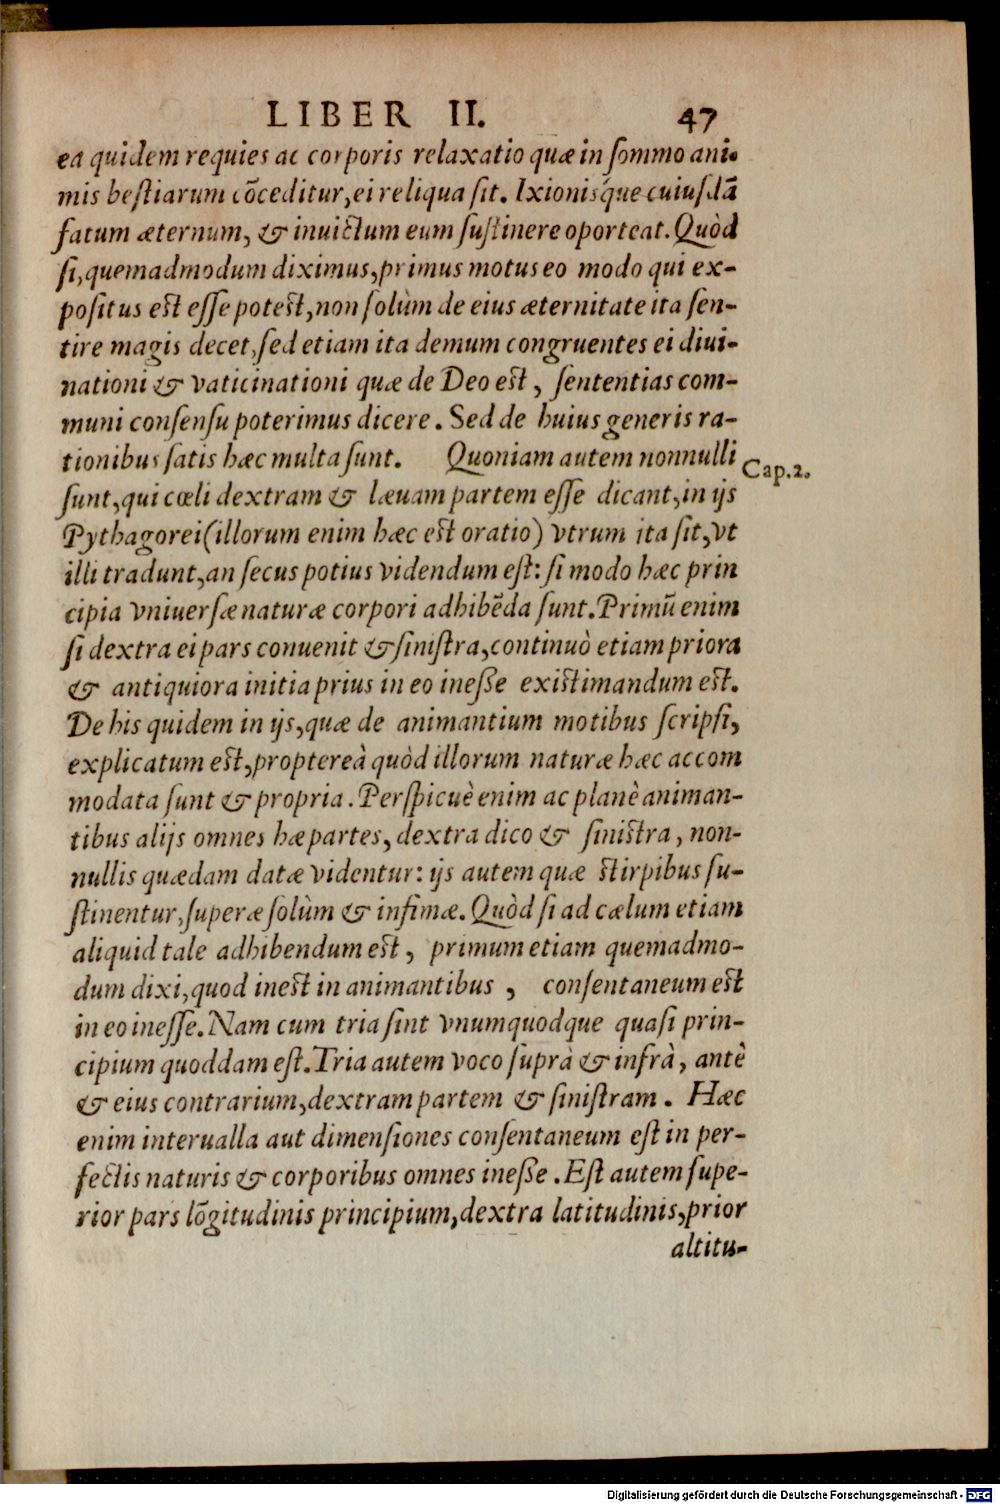 LIBER II. 47
ea quidem requies ac corporis relaxatio quæ in sommo ani-
mis bestiarum cõceditur, ei reliqua sit. Ixionisq́ue cuiusdã
fatum æternum, & inuictum eum sustinere oporteat. Quòd
si, quemadmodum diximus, primus motus eo modo qui ex-
positus est esse potest, non solùm de eius æternitate ita sen-
tire magis decet, sed etiam ita demum congruentes ei diui-
nationi & vaticinationi quæ de Deo est, sententias com-
muni consensu poterimus dicere. Sed de huius generis ra-
tionibus satis hæc multa sunt. Quoniam autem nonnulli
Cap.2.
sunt, qui cœli dextram & læuam partem esse dicant, in ijs
Pythagorei (illorum enim hæc est oratio) vtrum ita sit, vt
illi tradunt, an secus potius videndum est: si modo hæc prin
cipia vniuersæ naturæ corpori adhibẽda sunt. Primũ enim
si dextra ei pars conuenit & sinistra, continuò etiam priora
& antiquiora initia prius in eo inesse existimandum est.
De his quidem in ijs, quæ de animantium motibus scripsi,
explicatum est, proptereà quòd illorum naturæ hæc accom
modata sunt & propria. Perspicuè enim ac planè animan-
tibus alijs omnes hæ partes, dextra dico & sinistra, non-
nullis quædam datæ videntur: ijs autem quæ stirpibus su-
stinentur, superæ solùm & infimæ. Quòd si ad cælum etiam
aliquid tale adhibendum est, primum etiam quemadmo-
dum dixi, quod inest in animantibus, consentaneum est
in eo inesse. Nam cum tria sint vnumquodque quasi prin-
cipium quoddam est. Tria autem voco suprà & infrà, antè
& eius contrarium, dextram partem & sinistram. Hæc
enim interualla aut dimensiones consentaneum est in per-
fectis naturis & corporibus omnes inesse. Est autem supe-
rior pars lõgitudinis principium, dextra latitudinis, prior
altitu-
Digitalisierung gefördert durch die Deutsche Forschungsgemeinschaft - DFG